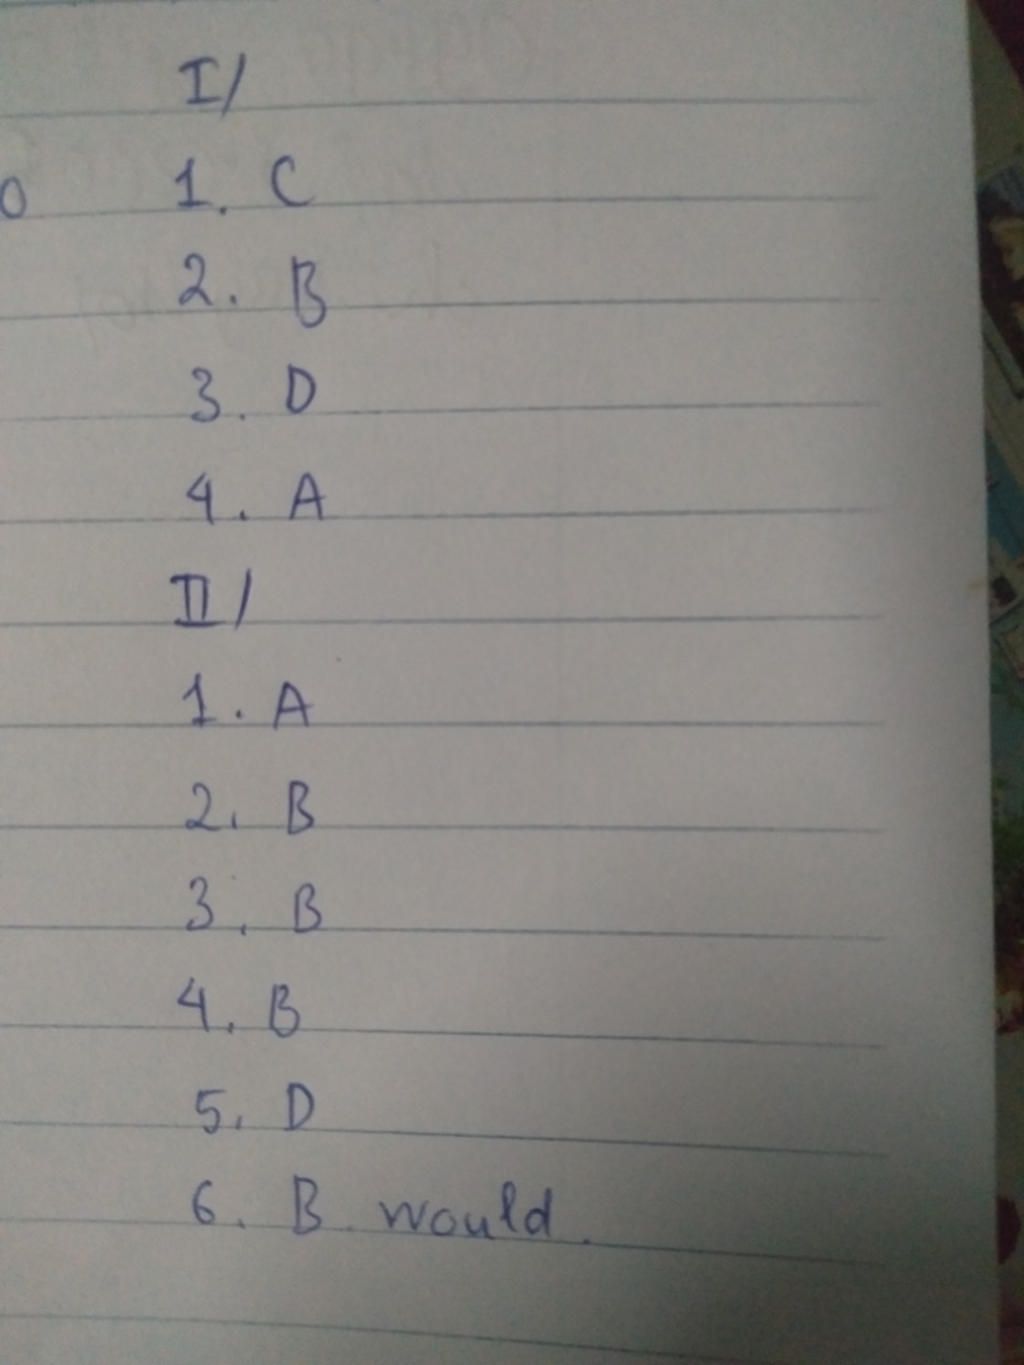 I/
1. C
2. B
3. D
4. A
II/
1. A
2. B
3. B
4. B
5. D
6. B would.